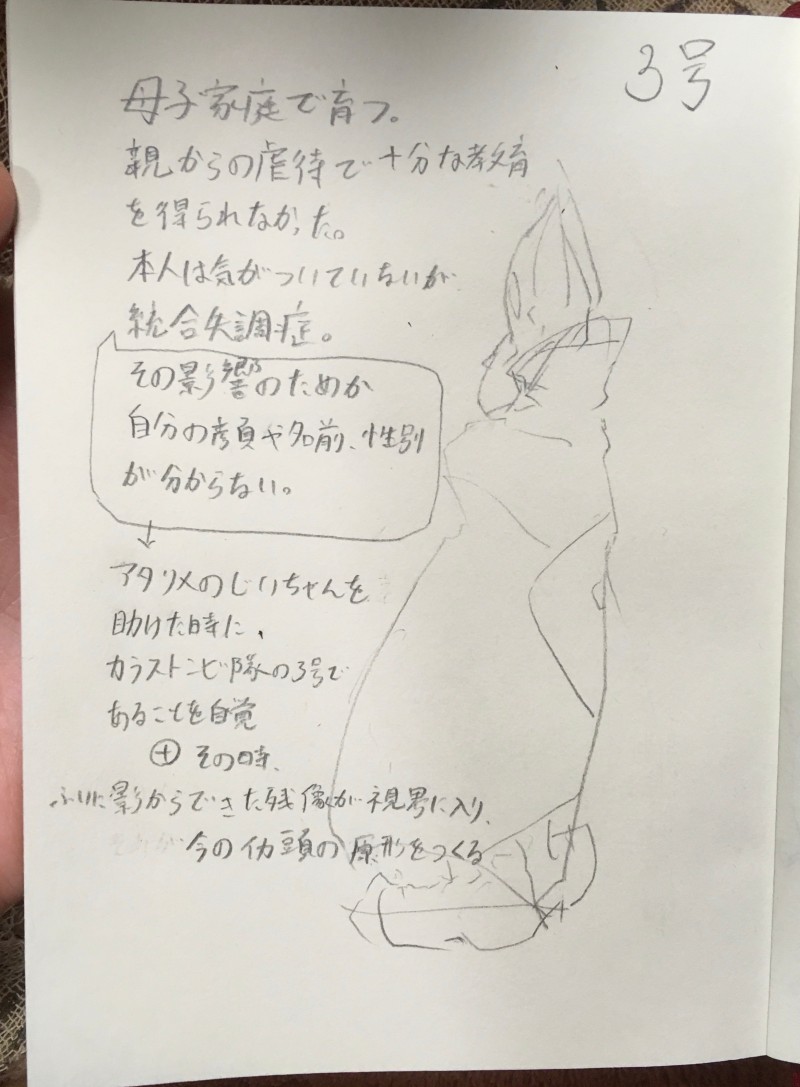 3号
母子家庭で育つ。
親からの虐待で十分な教育
を得られなかった。
本人は気がついていないが
統合失調症。
その影響のためか
自分の顔や名前、性別
が分からない。
↓
アタリメのじいちゃんを
助けた時に、
カラストンビ隊の3号で
あることを自覚
⊕ その時、
ふいに影からできた残像が視界に入り、
今のイカ頭の原形をつくる